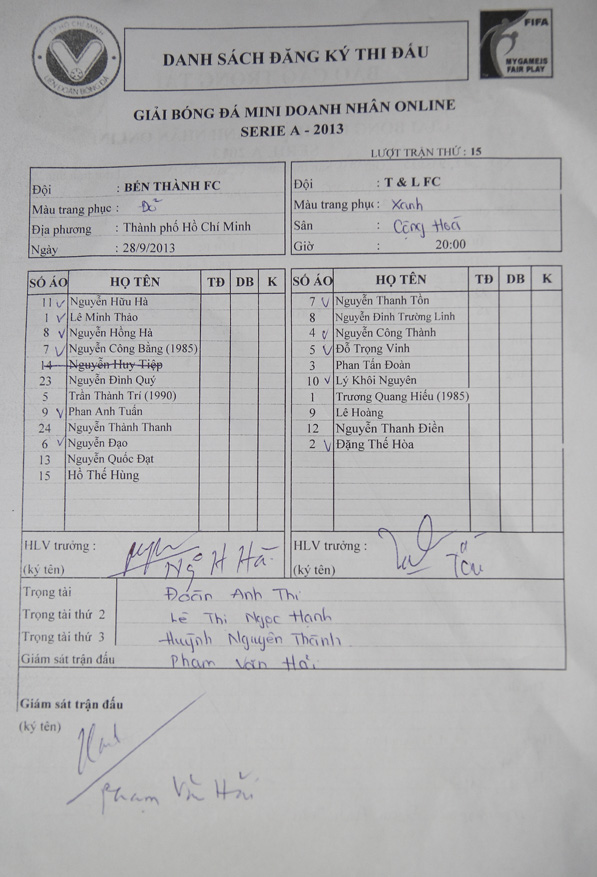 LIÊN ĐOÀN BÓNG ĐÁ
DANH SÁCH ĐĂNG KÝ THI ĐẤU
FIFA
MYGAMEIS
FAIR PLAY
GIẢI BÓNG ĐÁ MINI DOANH NHÂN ONLINE
SERIE A - 2013
LƯỢT TRẬN THỨ : 15
Đội : BẾN THÀNH FC
Màu trang phục : Đỏ
Địa phương : Thành phố Hồ Chí Minh
Ngày : 28/9/2013
Đội : T & L FC
Màu trang phục : Xanh
Sân : Cộng Hoà
Giờ : 20:00
SỐ ÁO HỌ TÊN TĐ DB K
11 Nguyễn Hữu Hà
1 Lê Minh Thảo
8 Nguyễn Hồng Hà
7 Nguyễn Công Bằng (1985)
14 Nguyễn Huy Tiệp
23 Nguyễn Đình Quý
5 Trần Thành Trí (1990)
9 Phan Anh Tuấn
24 Nguyễn Thành Thanh
6 Nguyễn Đạo
13 Nguyễn Quốc Đạt
15 Hồ Thế Hùng
SỐ ÁO HỌ TÊN TĐ DB K
7 Nguyễn Thanh Tồn
8 Nguyễn Đình Trường Linh
4 Nguyễn Công Thành
5 Đỗ Trọng Vinh
3 Phan Tấn Đoàn
10 Lý Khôi Nguyên
1 Trương Quang Hiếu (1985)
9 Lê Hoàng
12 Nguyễn Thanh Điền
2 Đặng Thế Hòa
HLV trưởng :
(ký tên) Ngô H Hà
HLV trưởng :
(ký tên)
Trọng tài Đoàn Anh Thi
Trọng tài thứ 2 Lê Thi Ngọc Hạnh
Trọng tài thứ 3 Huỳnh Nguyên Thành
Giám sát trận đấu Phạm Văn Hải
Giám sát trận đấu
(ký tên)
Phạm Văn Hải